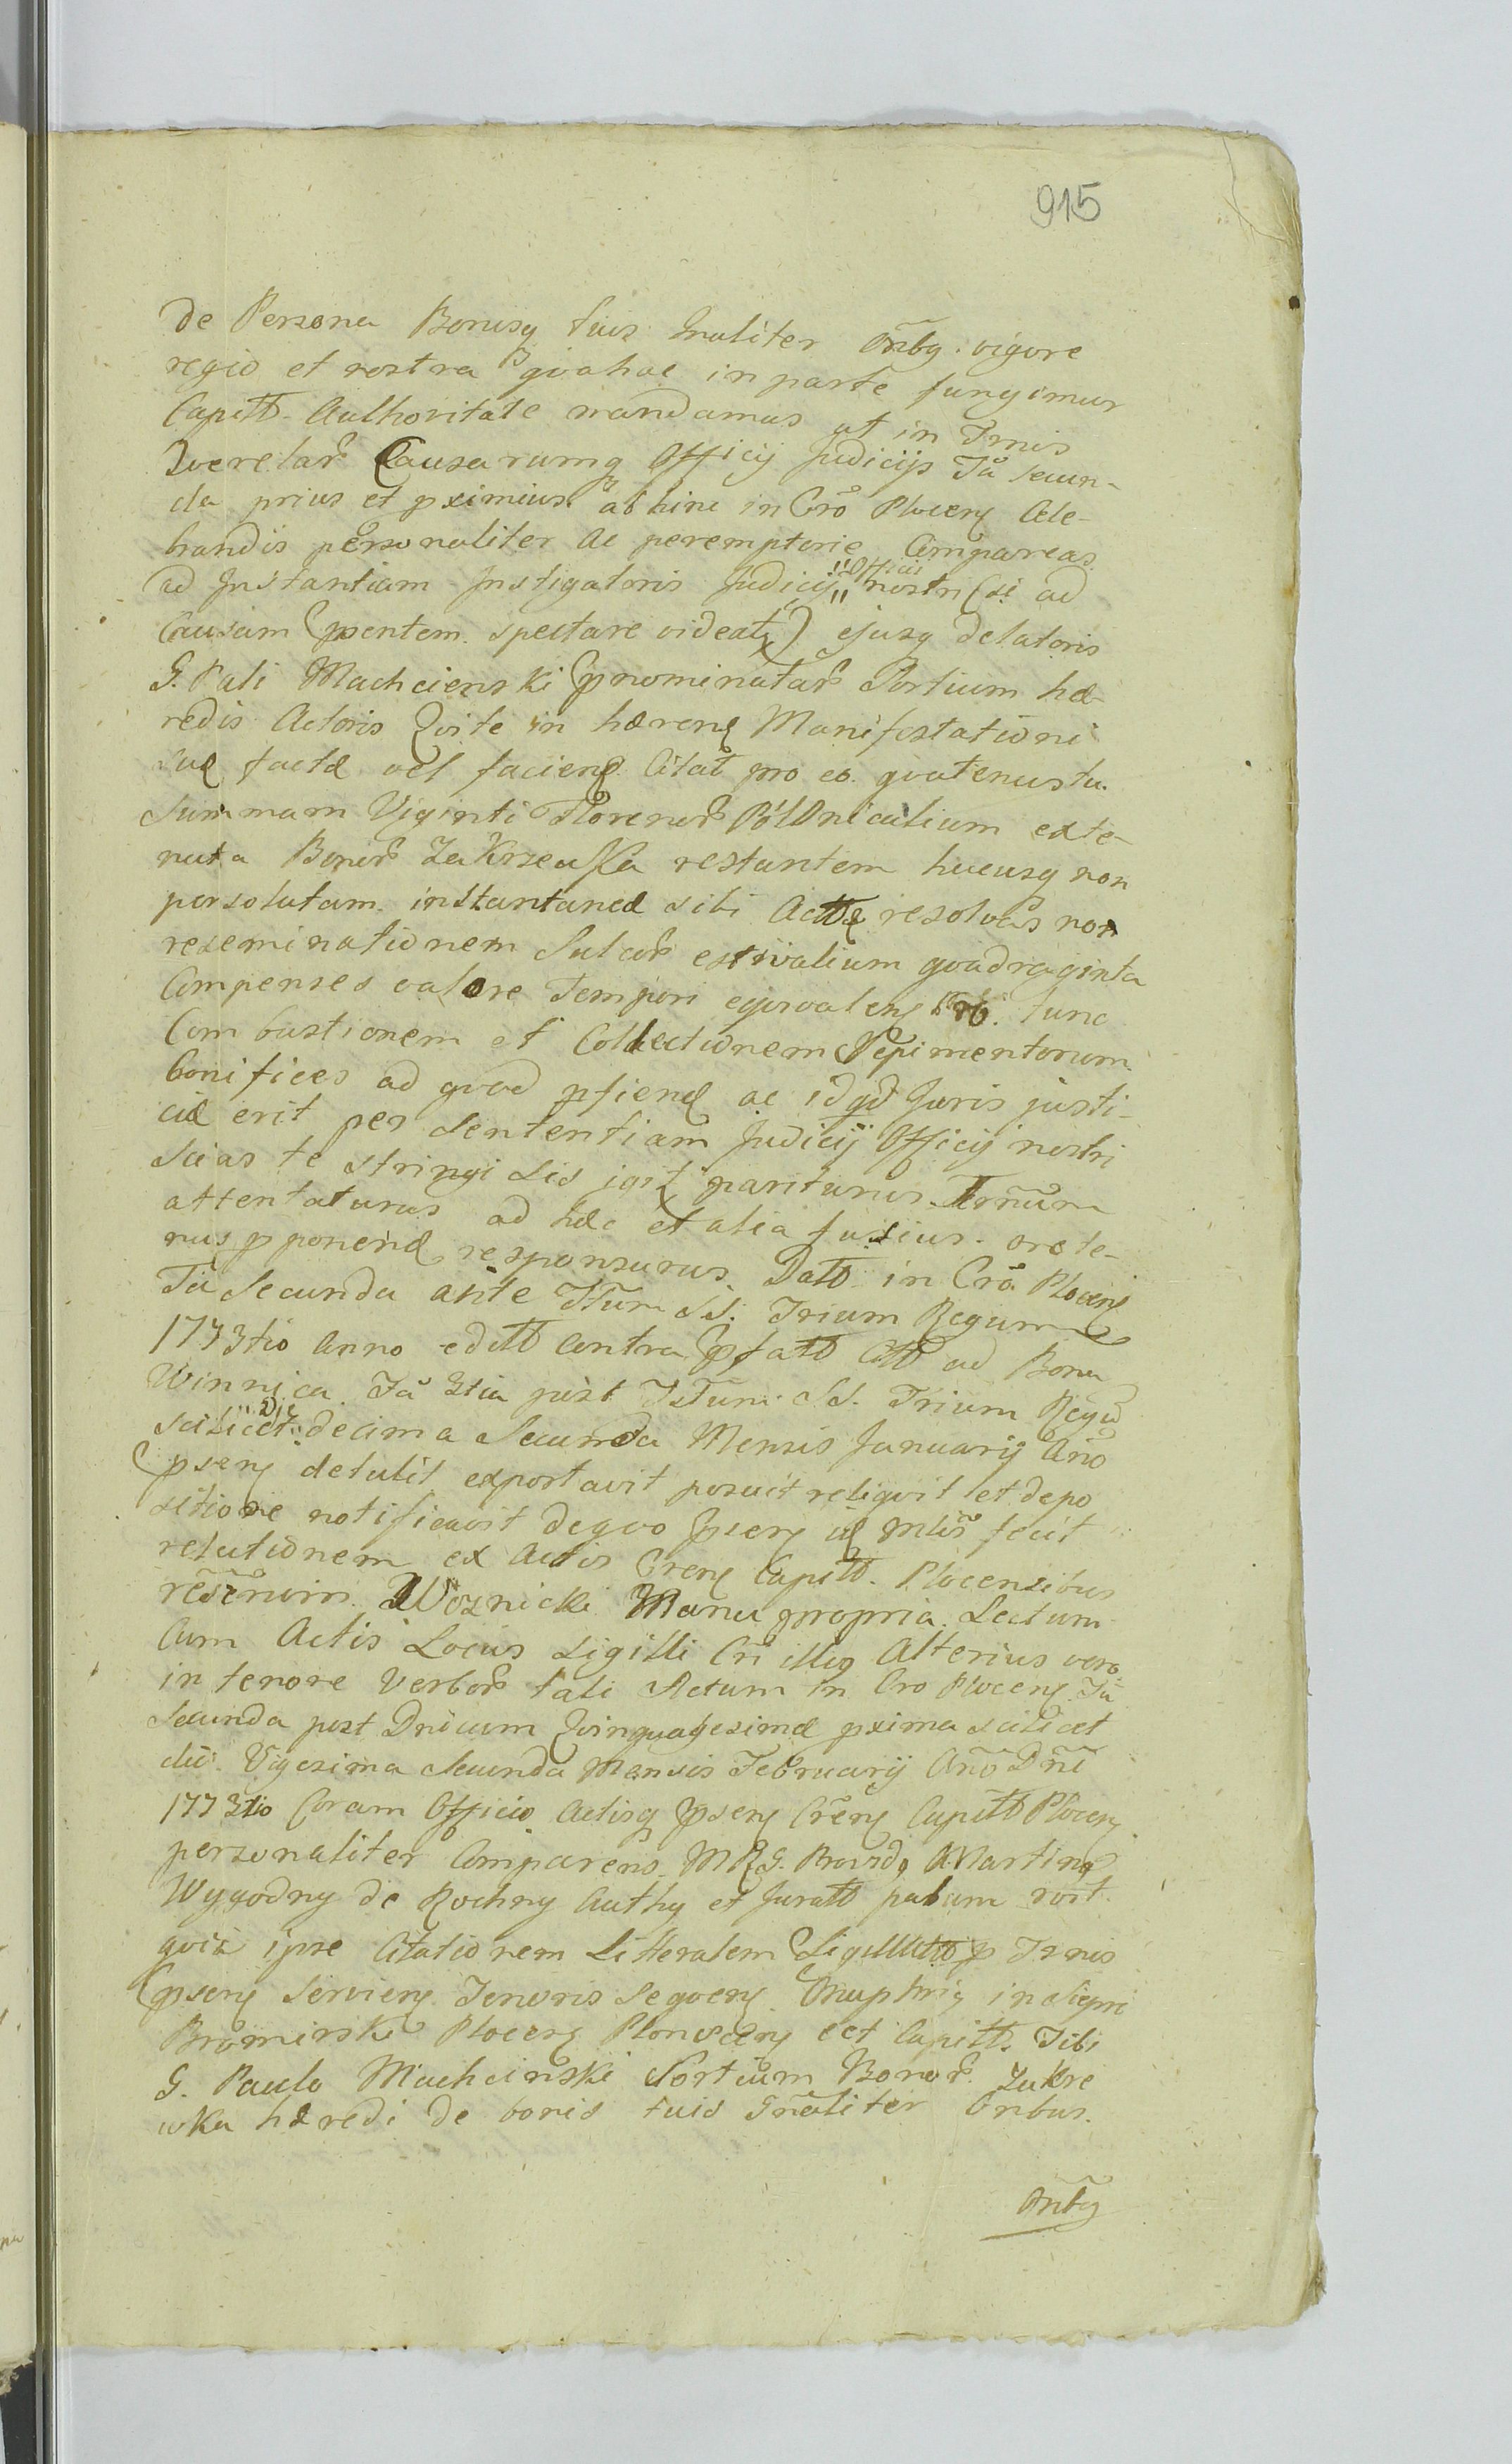 915
De Persona Bonisq tuis Gnaliter Oñbq. vigore
regio et nostra qva hac in parte fungimur
Capitt. Authoritate mandamus ut in Trnis
Querelar Causarumq Officij Judicijs Fã secun-
da prius et pximius ab hinc in Cro Plocen Cele-
brandis personaliter Ac peremptorie Compareas
ad Instantiam Instigatoris Judicij Officii nostri (si ad
Causam psentem spectare videat) ejusq delatoris
G. Pali Machcienski pnominatar Sortium hæ-
redis Actoris Qvi te in hæren Manifestationi
suæ factæ vel faciend. Citat pro eo. qvatenus tu
Summam Viginti Florenor Polonicalium ex te-
nuta Bonor Zakrzewka restantem hucusq non
persolutam instantanee sibi Actt resolvas non
reseminationem Sulcor estivalium qvadraginta
Compenses valore Tempori eqvivalen tunc
Combustionem et Collectionem Sepimentorum
bonifices ad qvod pficend ac id qd Juris justi-
ciæ erit per Sententiam Judicij Officij nostri
scias te stringi sis igit pariturus Trñum
attentaturus ad hæc et alia fusius. orete-
nus pponend responsurus Datt in Crã Plocen
Fã Secunda ante Ftum SS. Trium Regum
1773tio Anno editt Contra pfatt Citt ad Bona
Winnica Fã 3tia post Fstum SS. Trium Regu
scilicet Die decima Secunda Mensis Januarij Año
psen detulit exportavit posuit reliqvit et depo
sitione notificavit de qvo psen ut mlis fecit
relationem ex Actis Cren Capitt. Plocensibus
Woznicki Manu propria. Lectum
Cum Actis Locus Sigilli Cri illiq Alterius vero
in tenore Verbor tali Actum in Cro Plocen Fã
Secunda post Dnicam Qvinquagesimæ pxima scilicet
die Vigesima Secunda Mensis Februarij Año Dñi
1773tio Coram Officio Actisq psen Cren Capitt Plocen
personaliter Comparens. M. G. Providq Martinq
Wygodny de Rochny Authq et Juratt palam
qvia ipse Citationem Litteralem Sigillatt p Trnis
psen Servien Tenoris Seqven Onuphriq in Siepri
Bromirski Plocen Plonscen ect Capitt. Tibi
G. Paulo Machcinski Sortium Bonor. Zakrze
wka hæredi de bonis tuis Gñaliter Onbus.
Oñbq